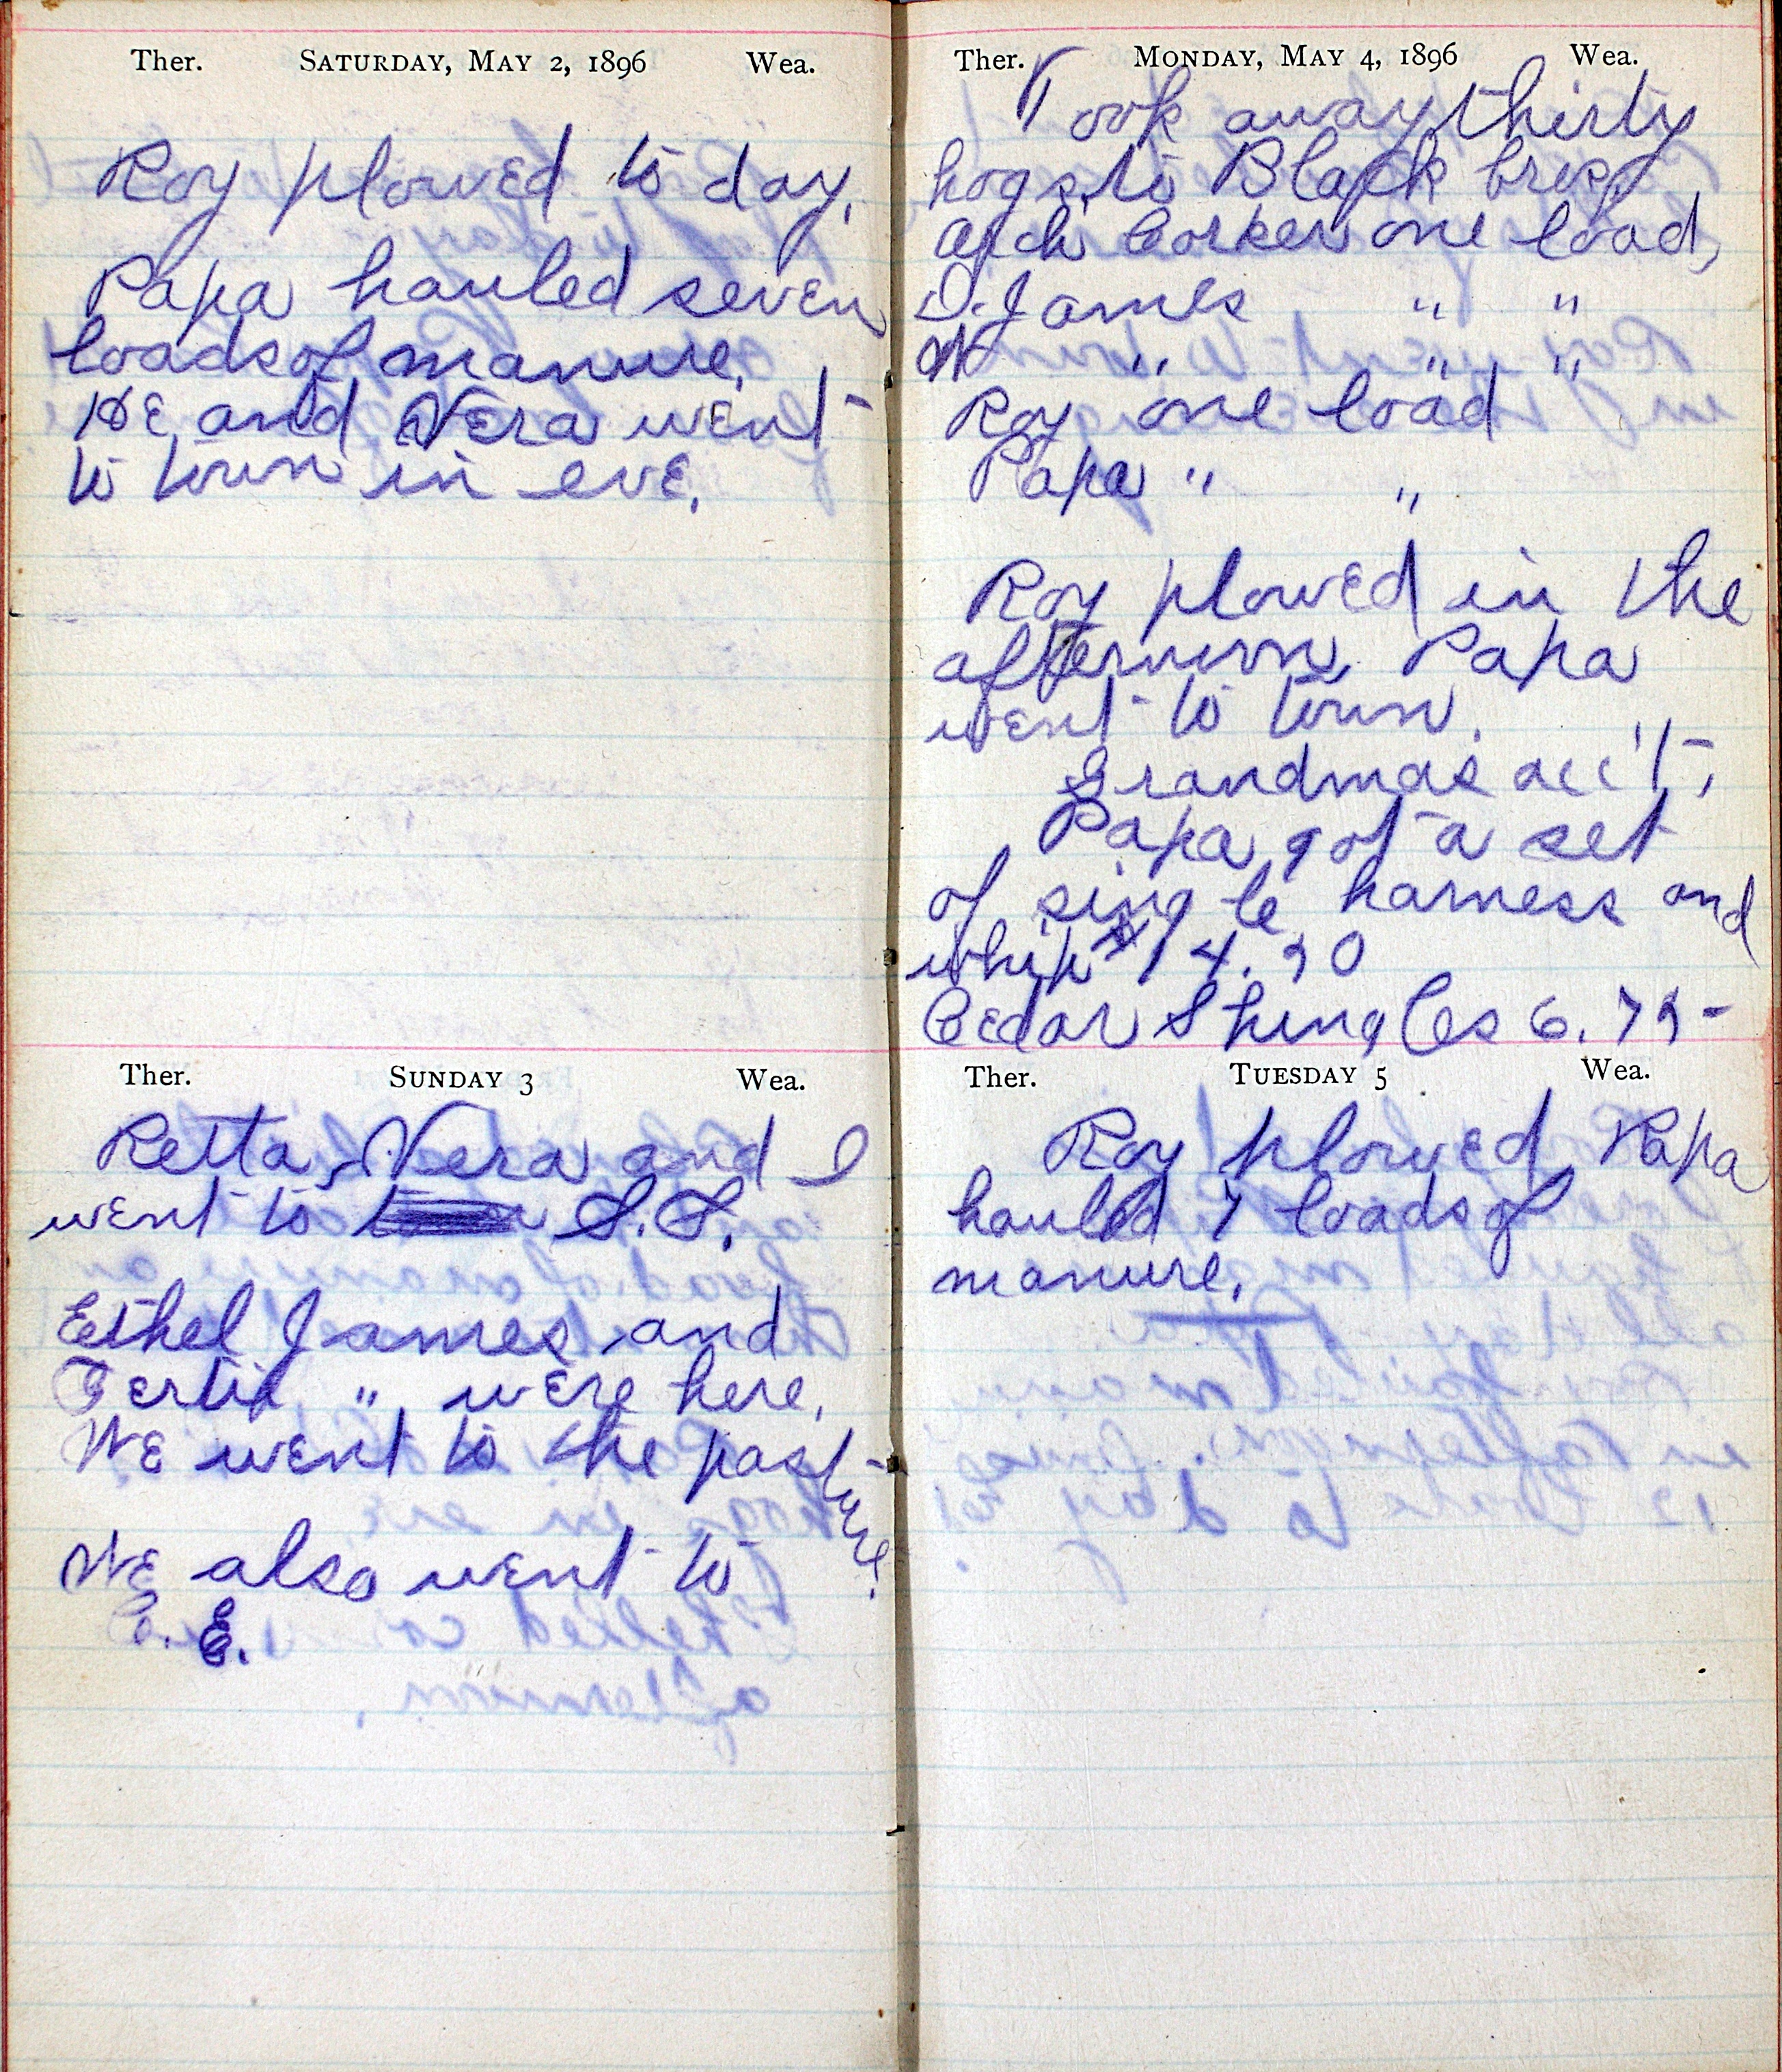 Ther. SATURDAY, MAY 2, 1896 Wea.
Roy plowed to day.
Papa hauled seven
loads of manure.
He and Vera went
to town in eve.
Ther. SUNDAY 3 Wea.
Retta, Vera and I
went to S.S.
Ethel James and
Tertia " were here.
We went to the pasture.
We also went to
C. E.
Ther. MONDAY, MAY 4, 1896 Wea.
Took away thirty
hogs, to Black bros,
Arch Corker one load,
D. James " "
W " " "
Roy one load
Papa " "
Roy plowed in the
afternoon, Papa
went to town.
Grandmas acc't,
Papa got a set
of single harness and
whip $14.50
Cedar Shingles 6.75-
Ther. TUESDAY 5 Wea.
Roy plowed, Papa
hauled 7 loads of
manure.